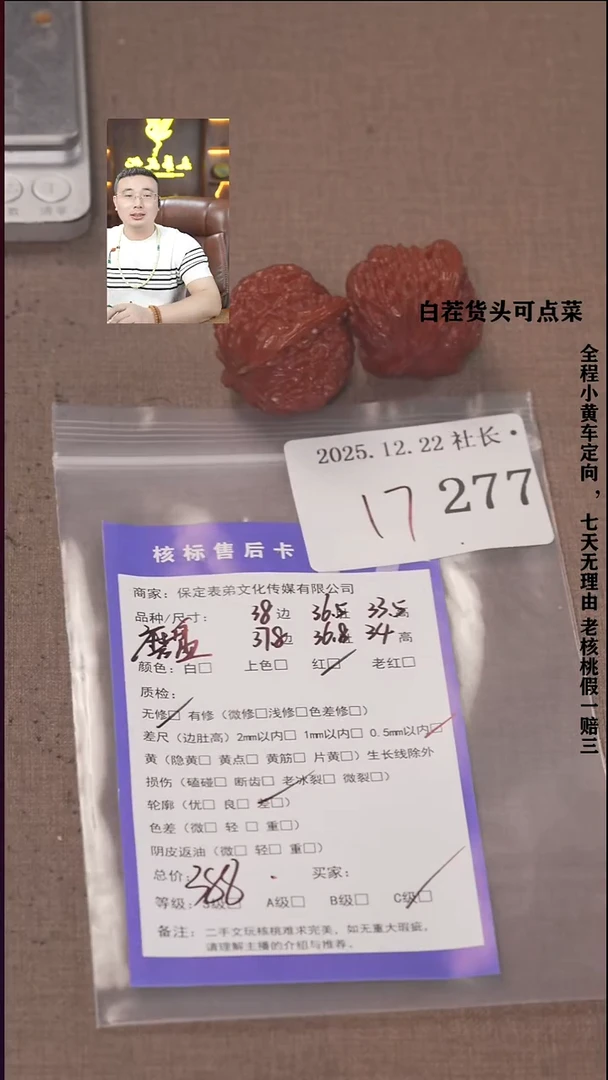 白茬货头可点菜
全程小黄车定向，七天无理由 老核桃假一赔三
2025.12.22 社长·
17 277
核标售后卡
商家：保定表弟文化传媒有限公司
品种/尺寸： 38边 36.5肚 33.5高
磨盘 37.8边 36.8肚 34高
颜色：白□ 上色□ 红□ 老红□
质检：
无修□ 有修（微修□浅修□色差修□）
差尺（边肚高）2mm以内□ 1mm以内□ 0.5mm以内□
黄（隐黄□ 黄点□ 黄筋□ 片黄□）生长线除外
损伤（磕碰□ 断齿□ 老冰裂□ 微裂□）
轮廓（优□ 良□ 差□）
色差（微□ 轻□ 重□）
阴皮返油（微□ 轻□ 重□）
总价：388 买家：
等级：S级□ A级□ B级□ C级□
备注：二手文玩核桃难求完美，如无重大瑕疵，
请理解主播的介绍与推荐。